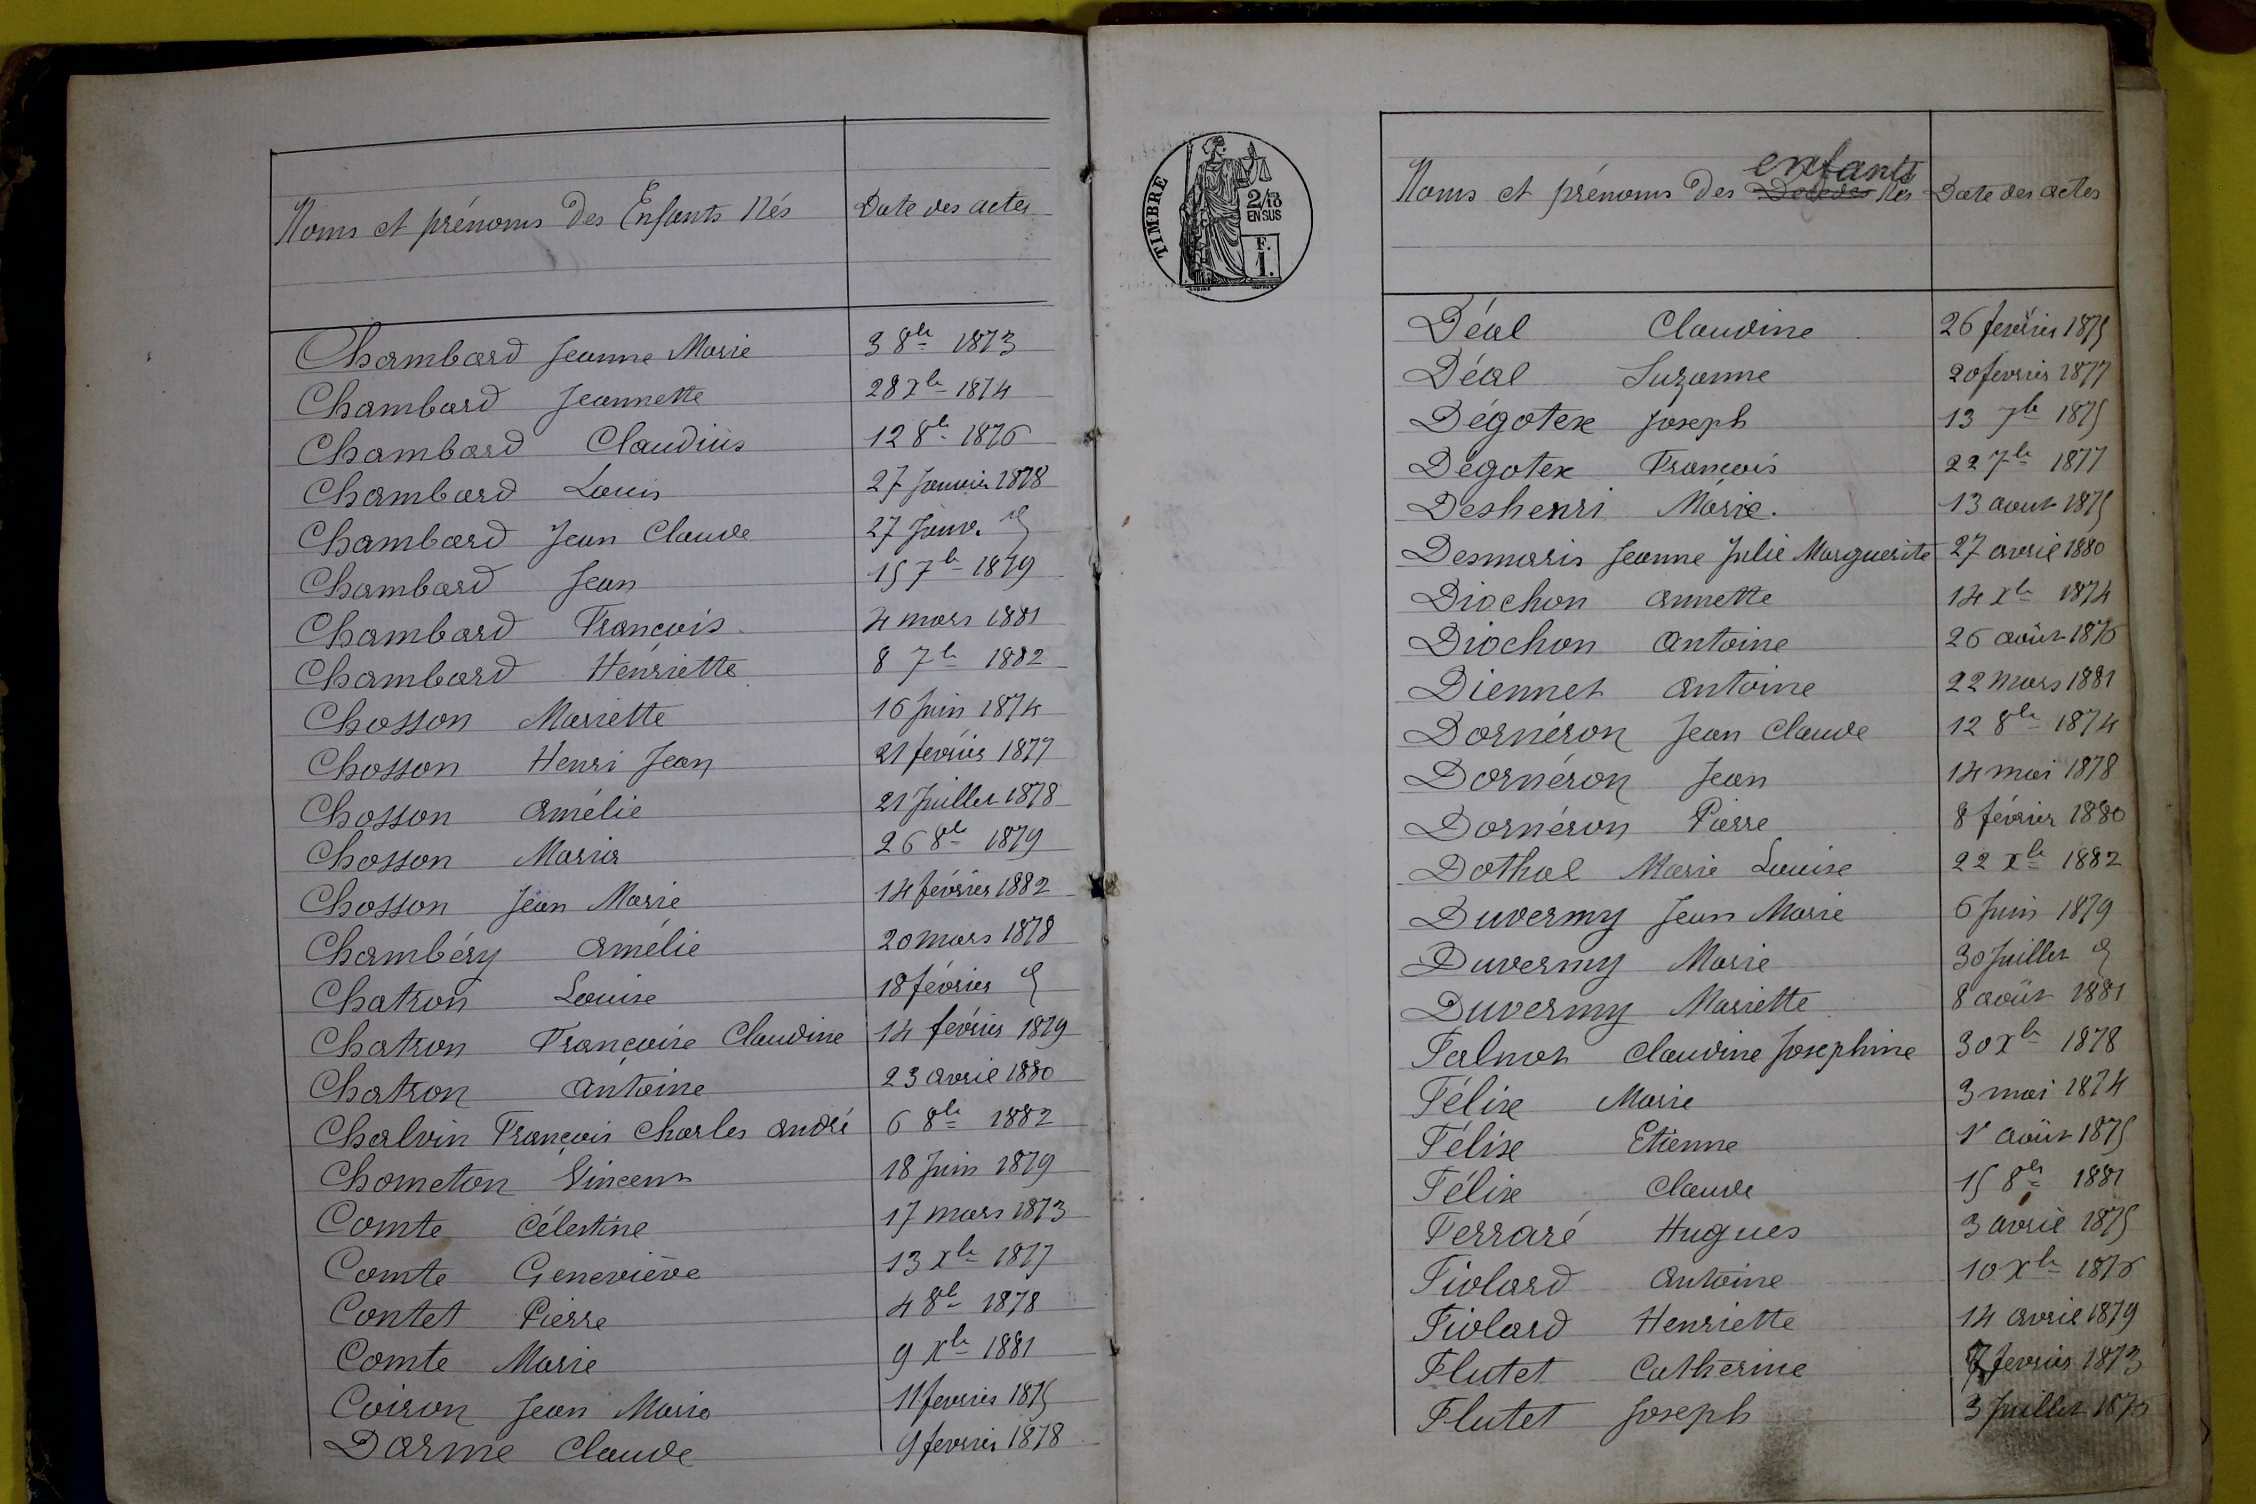 Noms et prénoms des Enfants Nés Date des actes
Chambard Jeanne Marie 3 8bre 1873
Chambard Jeannette 28 Xbre 1874
Chambard Claudius 12 8bre 1876
Chambard Louis 27 Janvier 1878
Chambard Jean Claude 27 Janv. d°
Chambard Jean 15 7bre 1879
Chambard François 4 mars 1881
Chambard Henriette 8 7bre 1882
Chosson Mariette 16 Juin 1874
Chosson Henri Jean 21 février 1877
Chosson Amélie 21 Juillet 1878
Chosson Maria 26 8bre 1879
Chosson Jean Marie 14 février 1882
Chambéry Amélie 20 mars 1878
Chatron Louise 18 février d°
Chatron Françoise Claudine 14 février 1879
Chatron Antoine 23 avril 1880
Chalvin François Charles André 6 8bre 1882
Chometon Vincent 18 Juin 1879
Comte Célestine 17 mars 1873
Comte Geneviève 13 Xbre 1877
Contet Pierre 4 8bre 1878
Comte Marie 9 Xbre 1881
Coiron Jean Marie 11 fevrier 1875
Darme Claude 9 fevrier 1878
TIMBRE
2/10
EN SUS
F.
1.
enfants
Noms et prénoms des Décédés Nés Date des actes
Déal Claudine 26 février 1875
Déal Suzanne 20 fevrier 1877
Dégotex Joseph 13 7bre 1875
Dégotex François 22 7bre 1877
Deshenri Marie. 13 aout 1875
Desmaris Jeanne Julie Marguerite 27 avril 1880
Diochon Annette 14 Xbre 1874
Diochon Antoine 26 août 1876
Diennet Antoine 22 mars 1881
Dornéron Jean Claude 12 8bre 1874
Dornéron Jean 14 mai 1878
Dornéron Pierre 8 février 1880
Dothal Marie Louise 22 Xbre 1882
Duvermy Jean Marie 6 Juin 1879
Duvermy Marie 30 Juillet d°
Duvermy Mariette 8 août 1881
Falmot Claudine Josephine 30 Xbre 1878
Félix Marie 3 mai 1874
Félix Etienne 1r août 1875
Félix Claude 15 8bre 1881
Ferraré Hugues 3 avril 1875
Fiolard Antoine 10 Xbre 1876
Fiolard Henriette 14 avril 1879
Flutet Catherine 7 fevrier 1873
Flutet Joseph 3 Juillet 1875